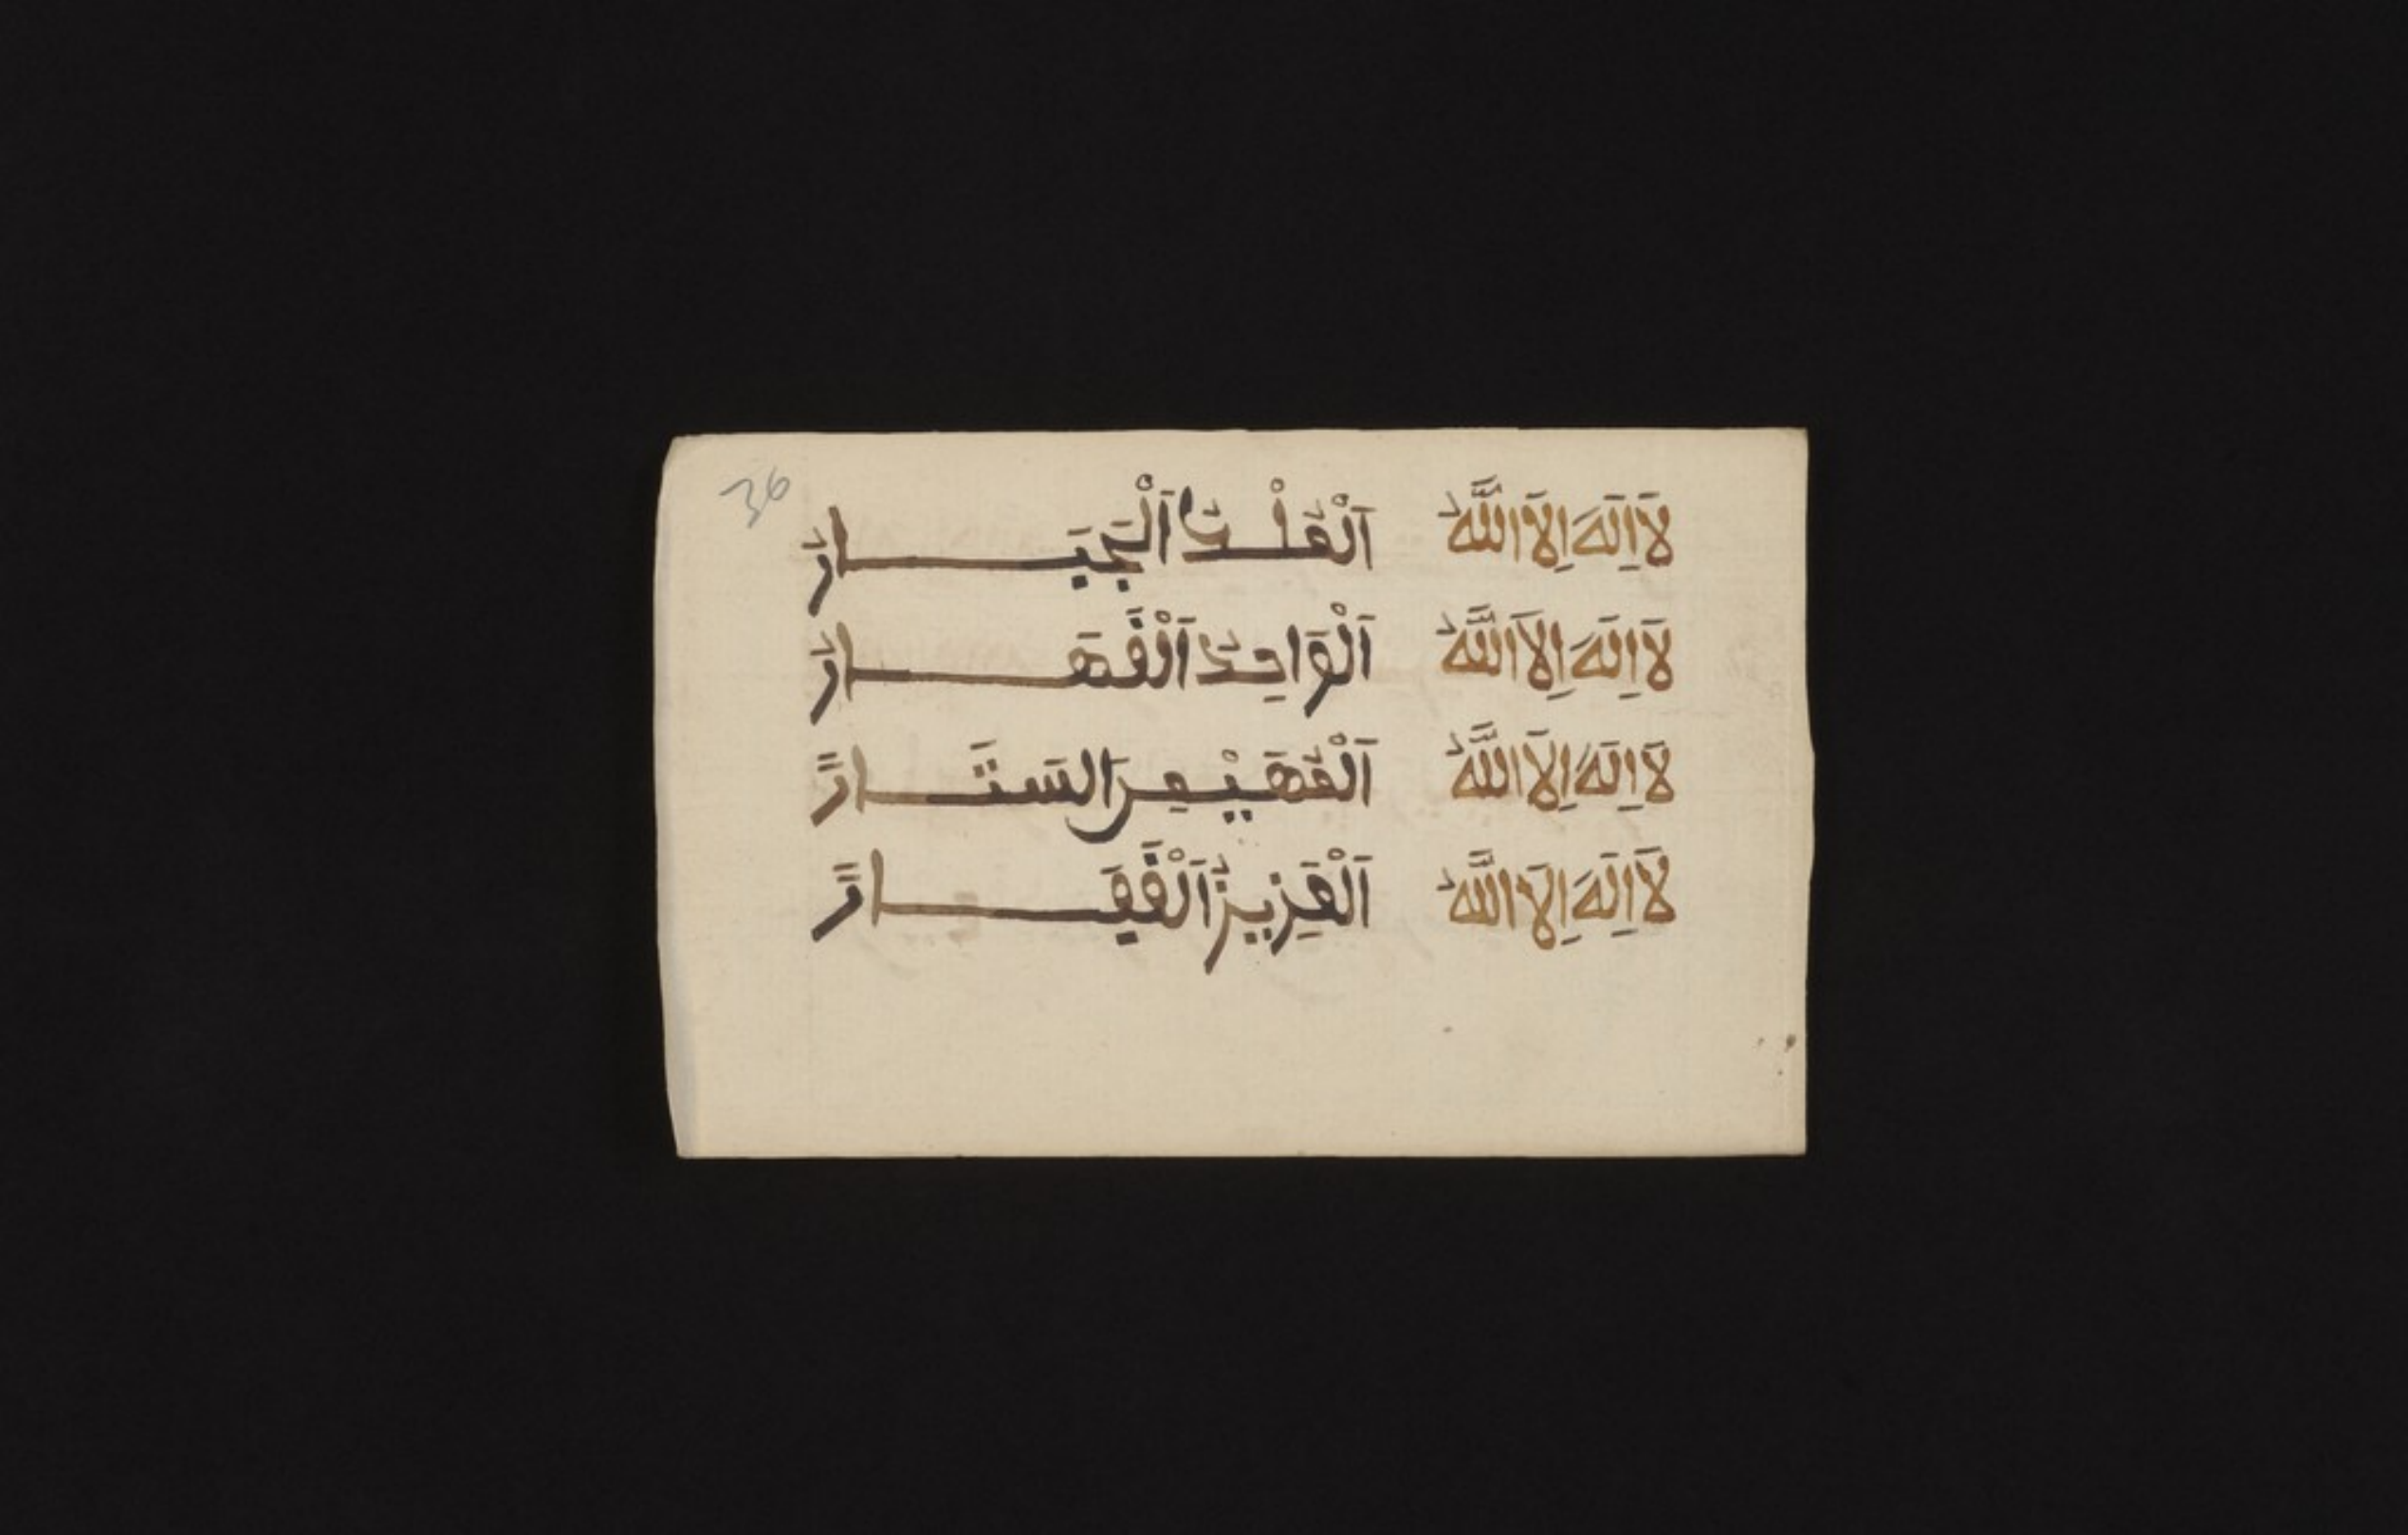 36
لَا اِلَهَ اِلَا اللَّهُ اَلْمَلْكُ اَلْجَبَارُ
لَا اِلَهَ اِلَا اللَّهُ اَلْوَاحِدُ اَلْقَهَارُ
لَا اِلَهَ اِلَا اللَّهُ اَلْمُهَيْمِنُ السَتَّارُ
لَا اِلَهَ اِلَا اللَّهُ اَلْعَزِيزُ اَلْغَفَارُ